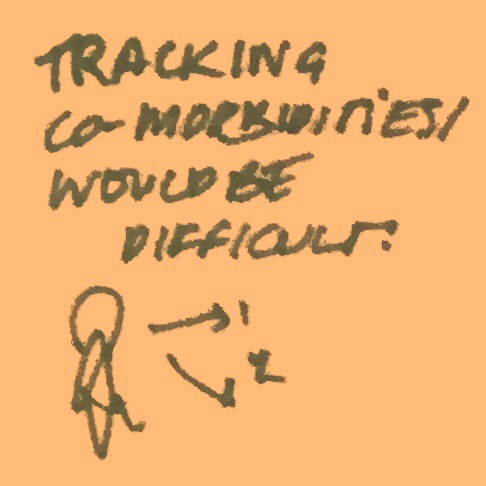 TRACKING
CO-MORBIDITIES/
WOULD BE
DIFFICULT.
1
2